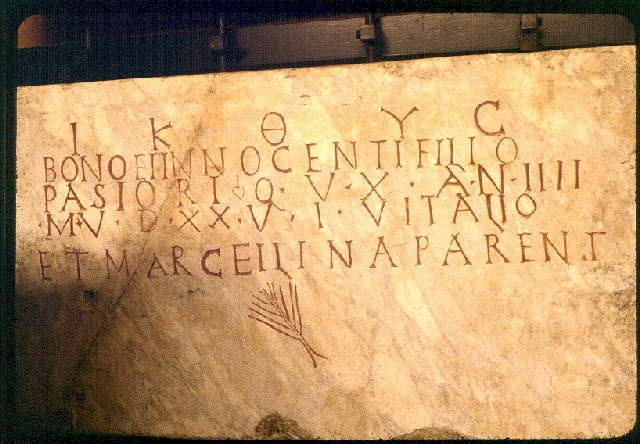 Ι Κ Θ Υ C
BONO ET INNOCENTI FILIO
PASTORI · Q · V · X · A · N · IIII
M · V · D · XX · V · I · VITALIO
ET MARCELLINA PARENT